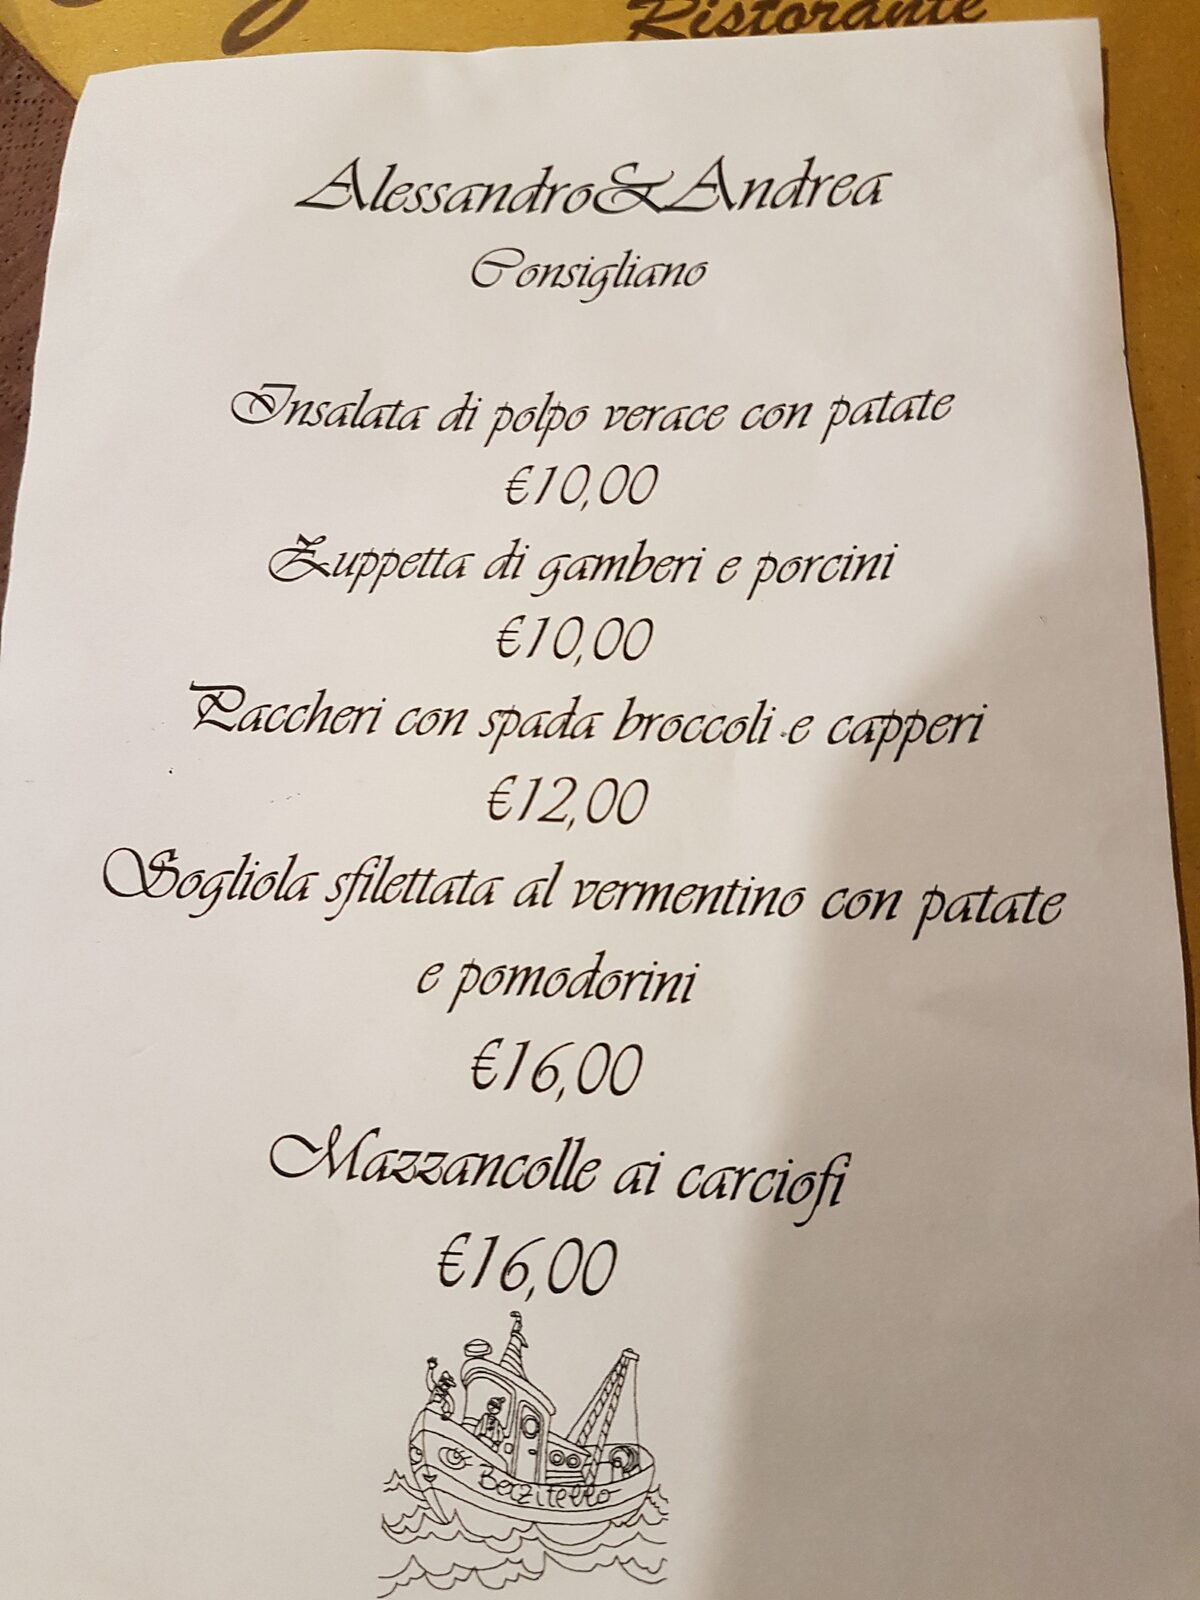 Ristorante
Alessandro&Andrea
Consigliano
Insalata di polpo verace con patate
€10,00
Zuppetta di gamberi e porcini
€10,00
Paccheri con spada broccoli e capperi
€12,00
Sogliola sfilettata al vermentino con patate
e pomodorini
€16,00
Mazzancolle ai carciofi
€16,00